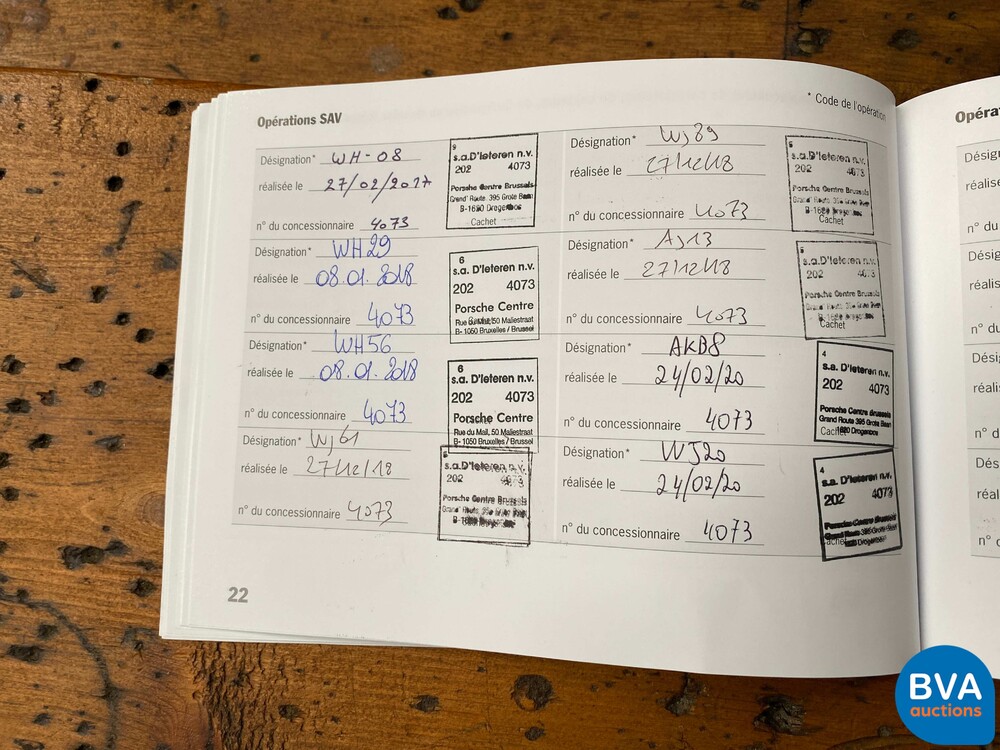 * Code de l'opération
Opérations SAV
Désignation* WH-08
réalisée le 27/02/2017
n° du concessionnaire 4073
9
s.a.D'Ieteren n.v.
202 4073
Porsche Centre Brussels
Grand' Route 395 Grote Baan
B-1620 Drogenbos
Cachet
Désignation* WH29
réalisée le 08.01.2018
n° du concessionnaire 4073
6
s.a. D'Ieteren n.v.
202 4073
Porsche Centre
Rue du Mail, 50 Maliestraat
B-1050 Bruxelles / Brussel
Désignation* WH56
réalisée le 08.01.2018
n° du concessionnaire 4073
6
s.a. D'Ieteren n.v.
202 4073
Porsche Centre
Rue du Mail, 50 Maliestraat
B-1050 Bruxelles / Brussel
Désignation* WJ61
réalisée le 27/12/18
n° du concessionnaire 4073
s.a.D'Ieteren n.v.
202 4073
Porsche Centre Brussels
Désignation* WJ89
réalisée le 27/12/18
n° du concessionnaire 4073
s.a.D'Ieteren n.v.
202 4073
Porsche Centre Brussels
Grand' Route 395 Grote Baan
B-1620 Drogenbos
Cachet
Désignation* AJ13
réalisée le 27/12/18
n° du concessionnaire 4073
s.a.D'Ieteren n.v.
202 4073
Porsche Centre Brussels
Cachet
Désignation* AKB8
réalisée le 24/02/20
n° du concessionnaire 4073
4
s.a. D'Ieteren n.v.
202 4073
Porsche Centre Brussels
Grand Route 395 Grote Baan
1620 Drogenbos
Désignation* WJ20
réalisée le 24/02/20
n° du concessionnaire 4073
4
s.a. D'Ieteren n.v.
202 4073
Porsche Centre Brussels
Grand Route 395 Grote Baan
1620 Drogenbos
22
BVA
auctions